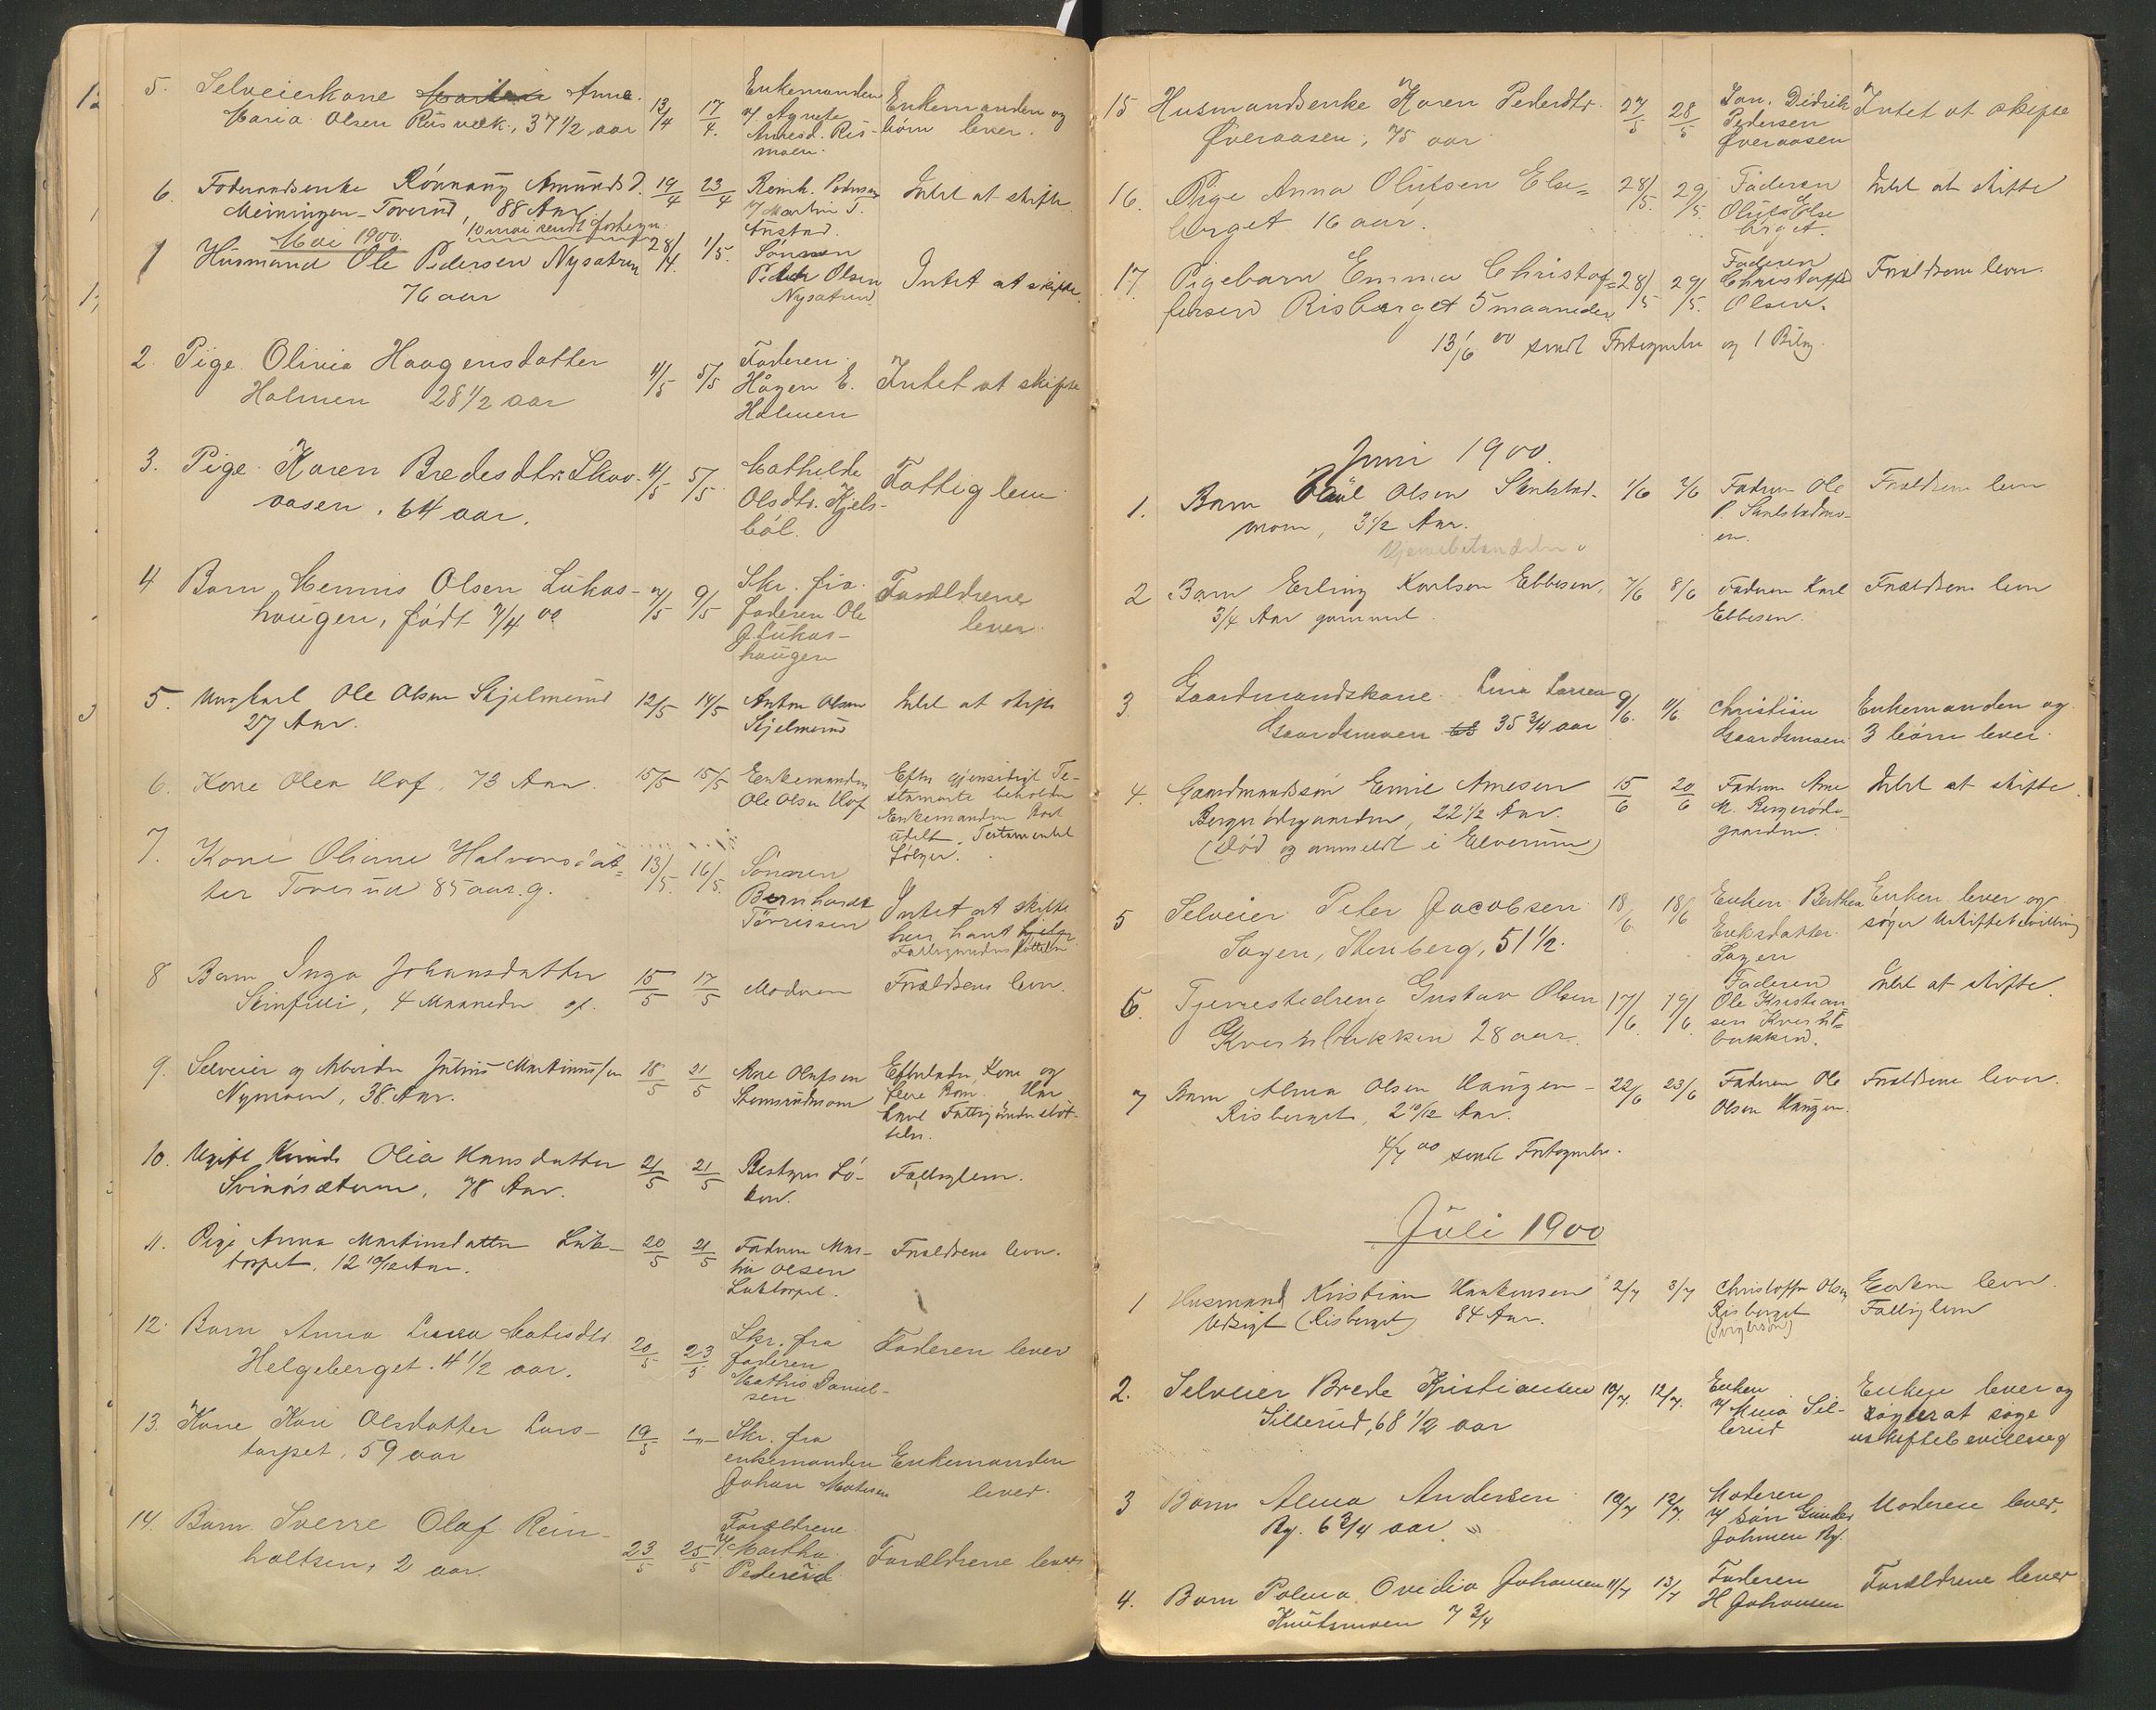 5. Selveierkone Anna
Maria Olsen Rusvæk, 37 1/2 aar 13/4 17/4. Enkemanden Enkemanden og
v/ Agnete børn lever.
Arnesd. Ris-
moen.
6. Foderaadsenke Rönnaug Amundsd. 19/4 23/4 Reinh. Pedersen Intet at skifte
Meiningen-Toverud, 88 Aar v/ Martin T.
10 mai sendt fortegn. Anstad.
Mai 1900.
1 Husmand Ole Pedersen Nysætren 28/4. 1/5. Sönnen
76 aar Peder Olsen Intet at skifte.
Nysætren
2. Pige Olivia Haagensdatter 4/5 5/5 Faderen Intet at skifte
Holmen 28 1/2 aar Hågen E.
Holmen
3. Pige Karen Bredesdtr. Skov- 4/5 5/5 Mathilde Fattiglem
aasen, 64 aar. Olsdtr. Kjels-
böl.
4 Barn Mennis Olsen Lukas- 7/5 9/5 Skr. fra Forældrene
haugen, födt 7/4 00 faderen Ole lever.
J. Lukas-
haugen
5. Ungkarl Ole Olsen Skjelmerud 12/5 14/5 Anton Olsen Intet at skifte
27 Aar. Skjelmerud
6. Kone Olea Hof, 73 Aar. 15/5 15/5 Enkemanden Efter gjensidigt Te-
Ole Olsen Hof stamente beholder
Enkemanden Boet
udelt. Testamentet
følger.
7. Kone Oliane Halvorsdat= 13/5. 16/5. Sönnen
ter Toverud 85 aar. g. Bernhardt Intet at skifte
Törrissen hun havt
Fattigunderstøttelse
8 Barn Inga Johansdatter 15/5 17/5 Moderen Forældrene lever.
4 Maaneder gl.
9. Selveier og Arbeider Julius Martinussen 18/5 21/5 Arne Olufsen Efterlader Kone og
Nymoen, 38 Aar. Stemsrudmoen flere Børn. Har
havt Fattigunderstöt-
telse.
10. Ugift Kvinde Olia Hansdatter 21/5 21/5 Bestyrer Lö- Fattiglem.
Svinåsæteren, 78 Aar. ken.
11. Pige Anna Martinsdatter Luts- 20/5 21/5 Faderen Mar- Forældrene lever.
torpet. 12 10/12 Aar. tin Olsen
Lutstorpet.
12. Barn Anna Lucia Matisdtr 20/5 23/5 Skr. fra Faderen lever
Helgeberget. 4 1/2 aar. faderen
Mathis Daniel-
sen
13. Kone Kari Olsdatter Lars- 19/5 -"- Skr. fra
torpet, 59 aar enkemanden Enkemanden
Johan Matisen lever.
14. Barn Sverre Olaf Rein- 23/5 25/5 Forældrene
holtsen, 2 aar. v/ Martha Forældrene lever
Pedersd.
15 Husmandsenke Karen Pedersdtr. 27/5 28/5 Jon. Didrik Intet at skifte
Øveraasen, 75 aar Pedersen
Øveraasen
16. Pige Anna Olufsen Else= 28/5. 29/5. Faderen Intet at skifte
berget 16 aar. Olufs Else
berget.
17. Pigebarn Emma Christof= 28/5 29/5. Faderen Forældrene lever.
fersen Risberget 5 maaneder Christoffer
Olsen.
13/6 00 sendt Fortegnelse og 1 Bilag.
Juni 1900.
1. Barn Olsen 1/6 2/6 Faderen Ole Forældrene lever
moen, 3 1/2 Aar. P.
en.
Hjernebetændelse
2 Barn Erling Karlsen Ebbesen, 7/6 8/6 Faderen Karl Forældrene lever
3/4 Aar gammel Ebbesen.
3. Gaardmandskone Lina Larsen 9/6. 11/6. Christian Enkemanden og
Gaardsmoen 35 3/4 aar Gaardsmoen 3 börn lever.
4. Gaardmandssön Emil Arnesen 15/6 20/6 Faderen Arne Intet at skifte.
Bergerödegaarden, 22 1/2 Aar. M. Bergeröde-
(död og anmeldt i Elverum) gaarden.
5 Selveier Peter Jacobsen 18/6. 18/6 Enken Berthea Enken lever og
Sagen, Stenberg, 51 1/2. Eriksdatter söger Uskiftebevilling
Sagen
6. Tjenestedreng Gustav Olsen 17/6. 19/6. Faderen Intet at skifte.
Kveshlbakken 28 aar. Ole Kristian
sen
bakken.
7 Barn Alma Olsen Haugen- 22/6 23/6 Faderen Ole Forældrene lever.
Risberget, 2 10/12 Aar. Olsen Haugen.
4/7 00 sendt Fortegnelse.
Juli 1900
1 Husmand Kristian Haakensen 2/7 3/7 Christoffer Olsen Enken lever.
Udsigt (Risberget) 84 Aar. Risberget Fattiglem
2. Selveier Brede Kristiansen 10/7. 12/7. Enken Enken lever og
Sillerud, 68 1/2 aar v/ Mina Sil- agter at søge
lerud uskiftebevilling
3 Barn Alma Andersen 10/7 12/7. Moderen Moderen lever.
Ry. 6 3/4 aar v/ sön Gunder
Johnsen Ry.
4. Barn Palma Ovidia Johansen 11/7 13/7 Faderen Forældrene lever
Knutsmoen 7 3/4 H Johansen